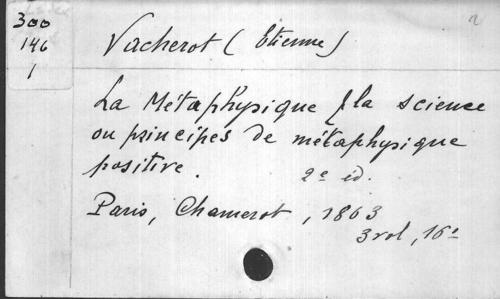 300
146
1
Vacherot (Etienne)
La Métaphysique & la science
ou principes de métaphysique
positive.
2e éd.
Paris, Chamerot, 1863
3 vol, 16°